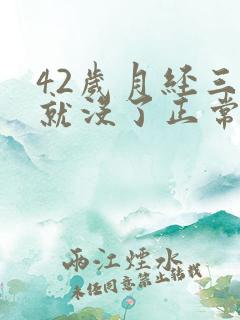 42歲月经三
就没了正常
兩江煙水
未经同意禁止转载